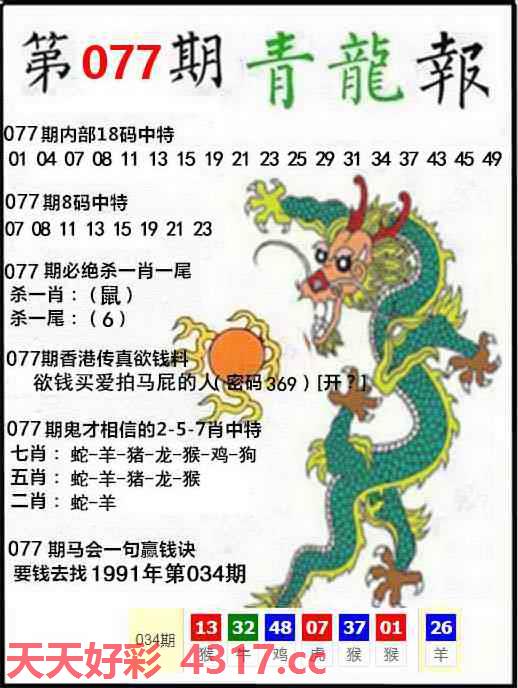 第077期 青龍報
077期内部18码中特
01 04 07 08 11 13 15 19 21 23 25 29 31 34 37 43 45 49
077期8码中特
07 08 11 13 15 19 21 23
077 期必绝杀一肖一尾
杀一肖：（鼠）
杀一尾：（6）
077期香港传真欲钱料
欲钱买爱拍马屁的人(密码369)[开？]
077期鬼才相信的2-5-7肖中特
七肖：蛇-羊-猪-龙-猴-鸡-狗
五肖：蛇-羊-猪-龙-猴
二肖：蛇-羊
077 期马会一句赢钱诀
要钱去找1991年第034期
034期 13 32 48 07 37 01 26
猴 牛 鸡 虎 猴 猴 羊
天天好彩 4317.cc